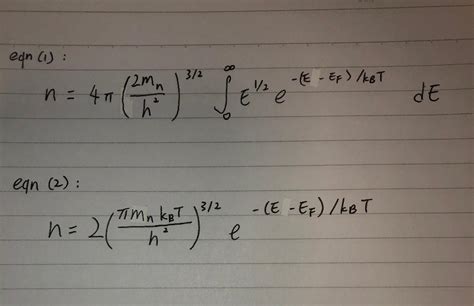 eqn (1) :
n = 4π (2mₙ/h²)^3/2 ∫₀^∞ E^1/2 e^-(E - E_F)/k_BT dE
eqn (2) :
n = 2(πmₙ k_BT/h²)^3/2 e^-(E - E_F)/k_BT